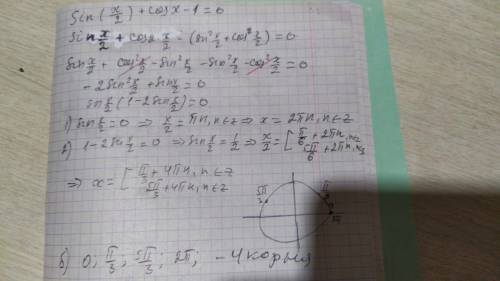 Sin(x/2) + cosx - 1 = 0
sin x/2 + cos2 x/2 - (sin² x/2 + cos² x/2) = 0
sin x/2 + cos² x/2 - sin² x/2 - sin² x/2 - cos² x/2 = 0
- 2sin² x/2 + sin x/2 = 0
sin x/2 (1 - 2sin x/2) = 0
1) sin x/2 = 0 ⇒ x/2 = πn, n∈z ⇒ x = 2πn, n∈z
2) 1 - 2sin x/2 = 0 ⇒ sin x/2 = 1/2 ⇒ x/2 = [ π/6 + 2πn, n∈z
5π/6 + 2πn, n∈z
⇒ x = [ π/3 + 4πn, n∈z
5π/3 + 4πn, n∈z
б) 0; π/3; 5π/3; 2π; - 4 корня